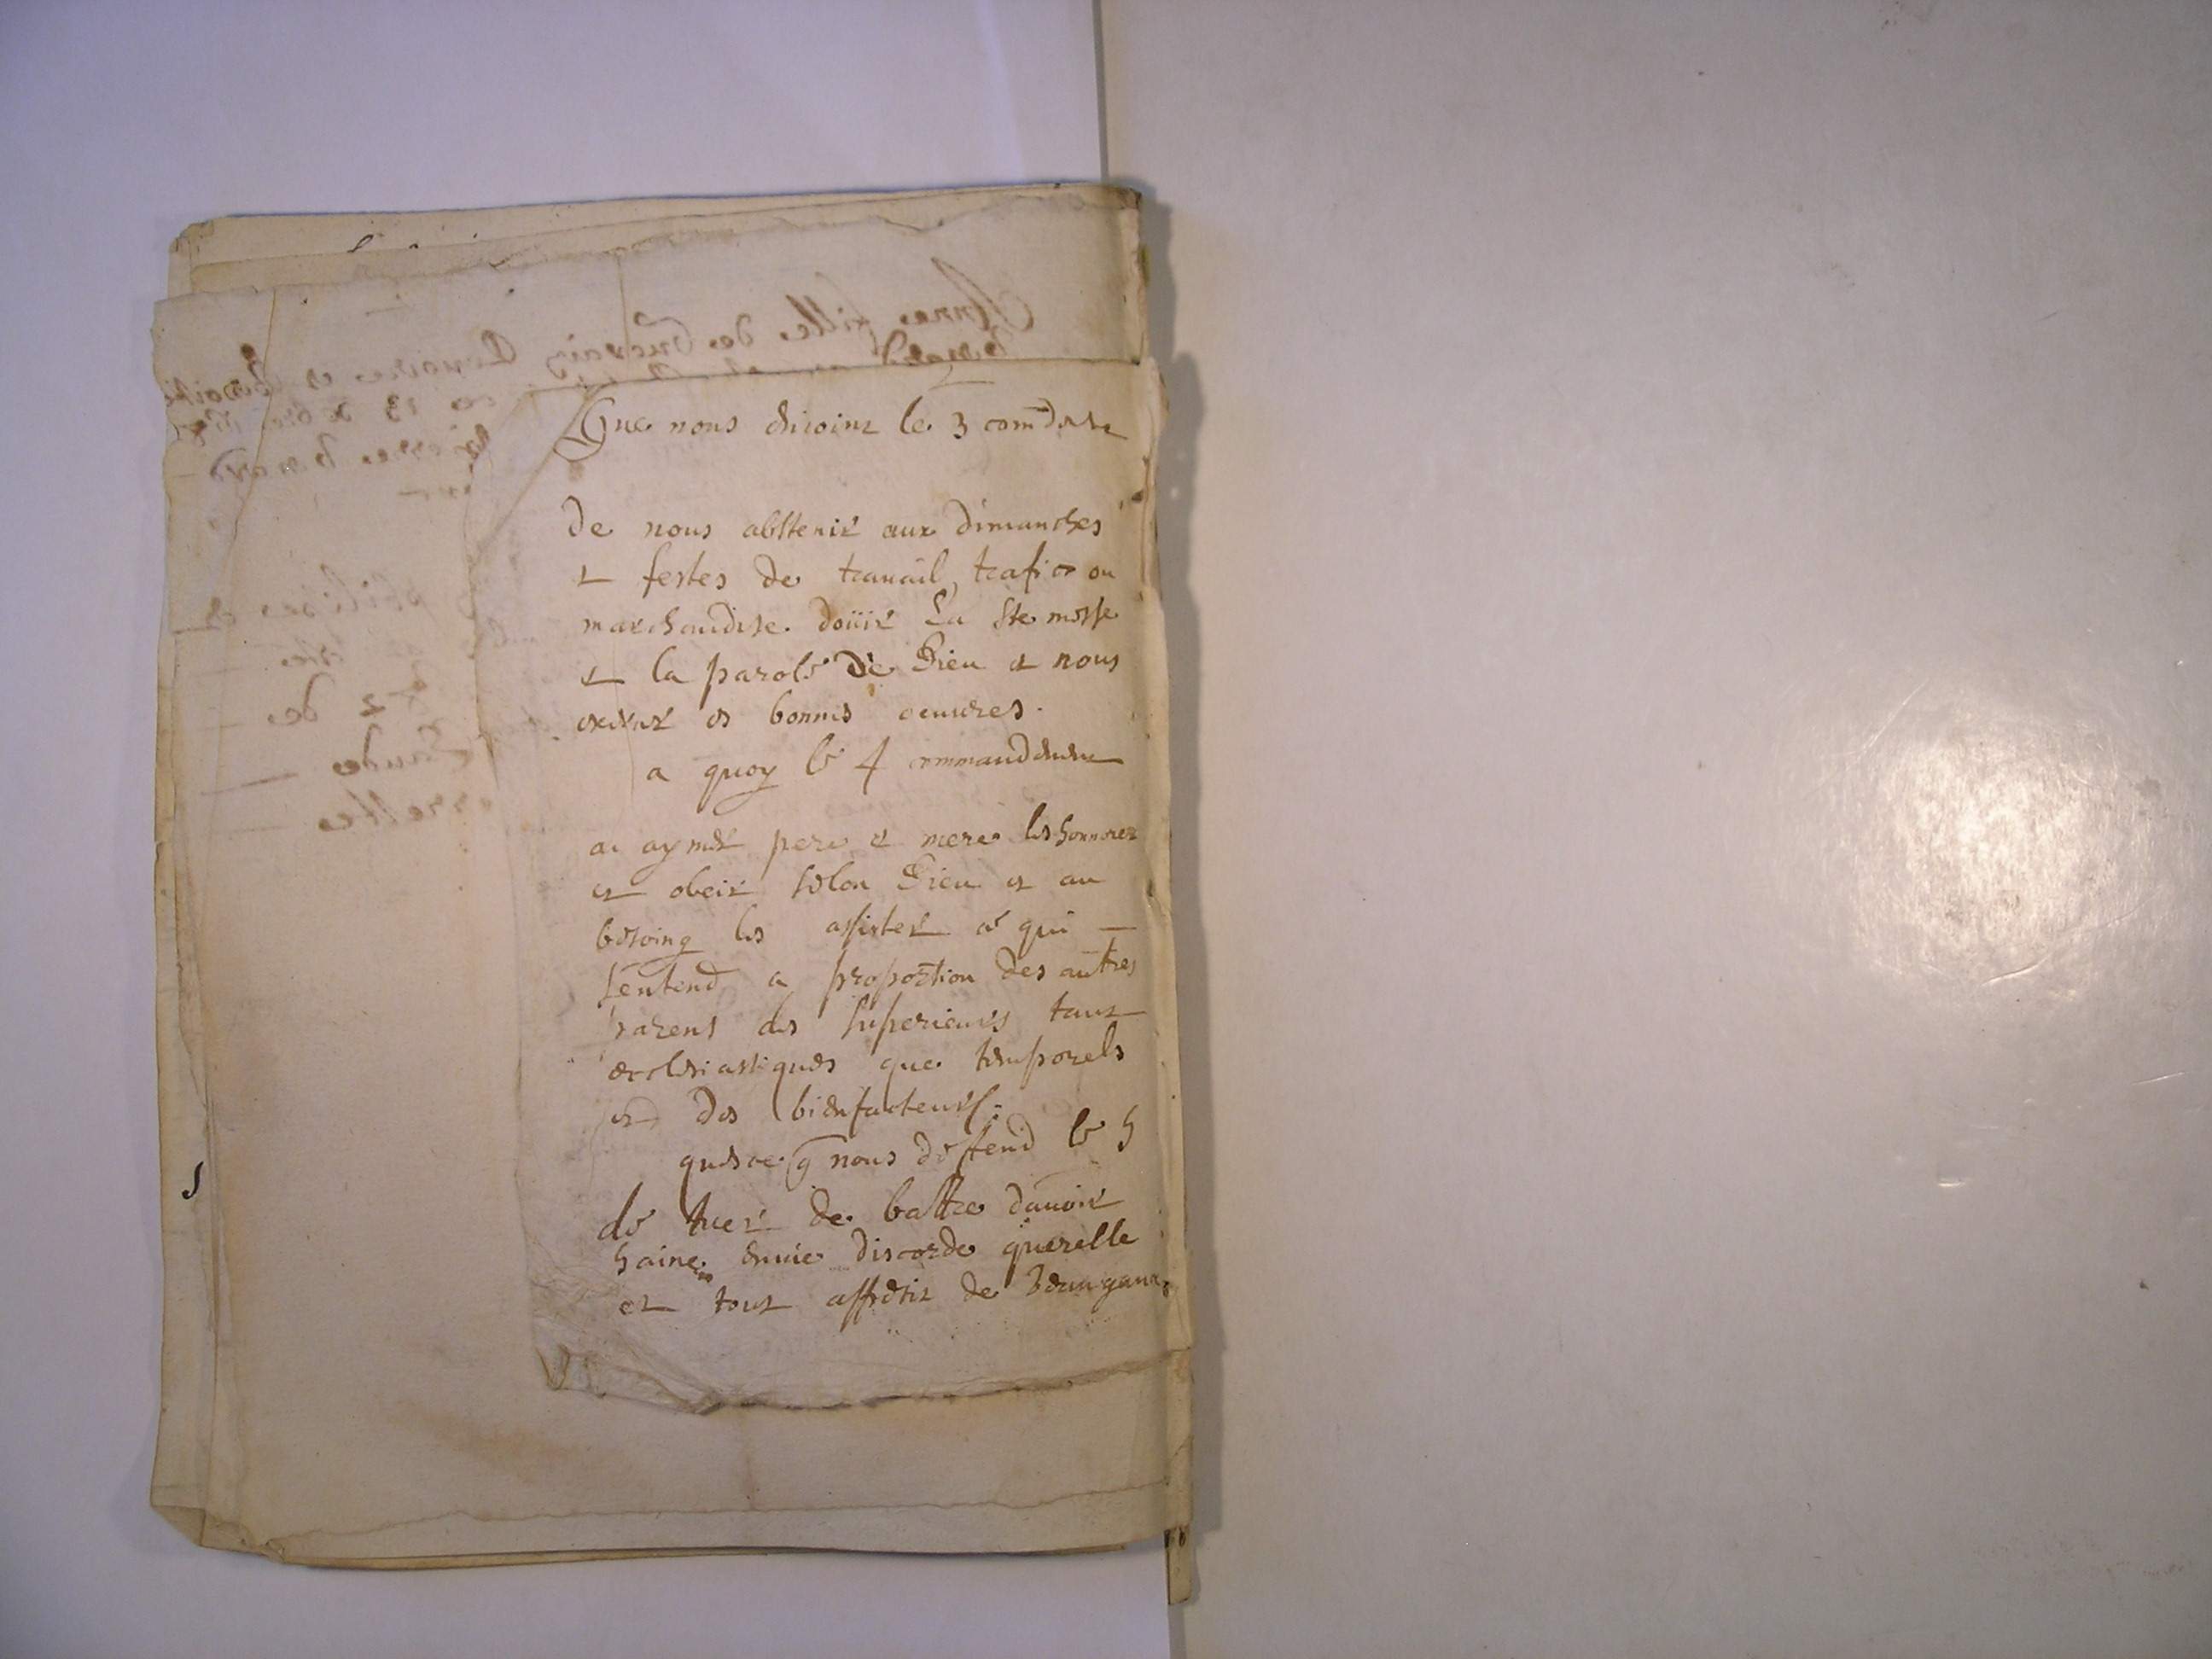 Que nous enioint le 3 com̄d.
de nous abstenir aux dimanches
et festes de trauail, trafic ou
marchandise. douïr La Ste messe
et la parole de Dieu et nous
exercer es bonnes oeuures.
a quoy le 4 commandement
a aymer pere et mere les honnorer
et obeir selon Dieu et au
besoing les assister ce qui
sentend a proportion des autres
parens des superieurs tant
ecclesiastiques que temporels
et des bienfacteurs.
quesce q nous deffend le 5
de tuer de battre dauoir
haine enuie discorde querelle
et tout de
Anne fille de et
ce 13
pierre
de